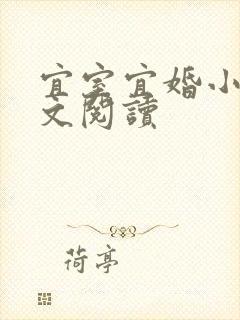 宜室宜婚小
文閱讀
荷亭